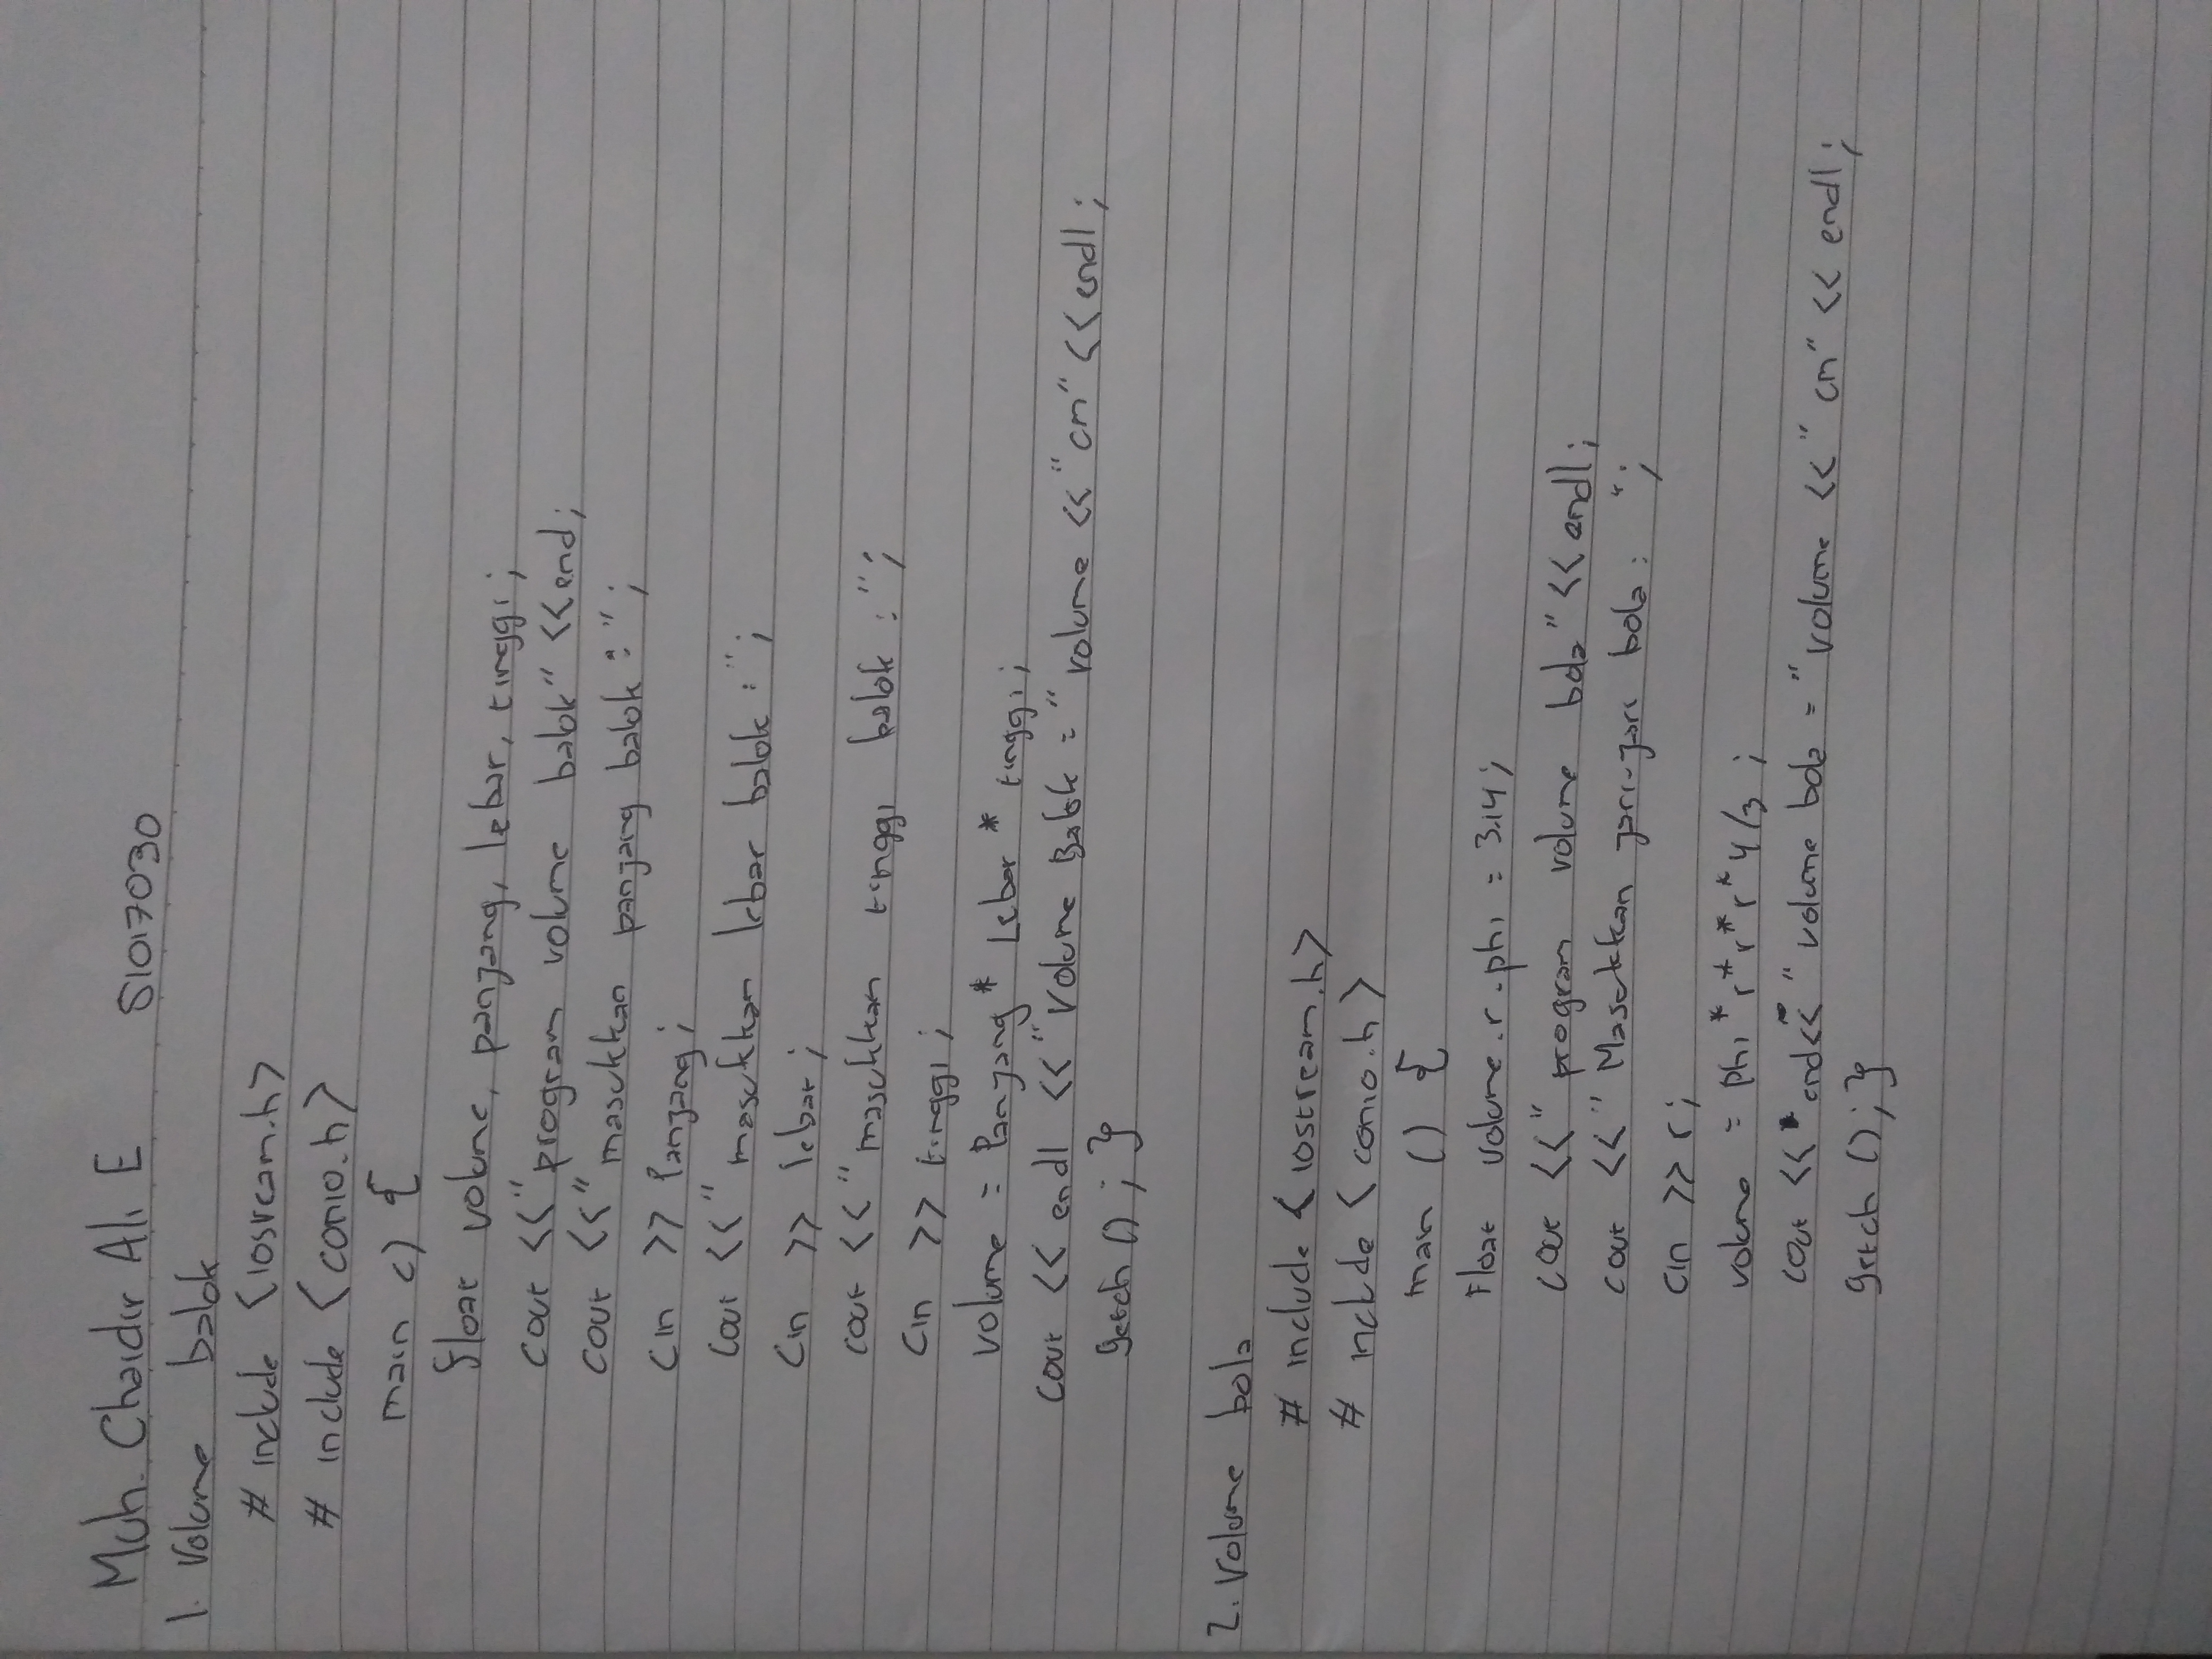 Muh. Chaidir Ali E S1017030
1. Volume balok
# include <iosream.h>
# include <conio.h>
main () {
float volume, panjang, lebar, tinggi;
cout <<"program volume balok" <<end;
cout <<"masukkan panjang balok :";
cin >> Panjang;
cout <<"masukkan lebar balok :";
cin >> lebar;
cout <<"masukkan tinggi balok :";
cin >> tinggi;
volume = Panjang * Lebar * tinggi;
cout << endl <<"Volume Balok =" volume <<"cm" <<endl;
getch (); }
2. Volume bola
# include <iostream.h>
# include <conio.h>
main () {
Float volume.r.phi = 3.14;
cout <<"program volume bola" <<endl;
cout <<"Masukkan jari-jari bola : ";
cin >> r;
volume = phi * r * r * r * 4/3;
cout << end<<"volume bola =" volume <<"cm" << endl;
getch (); }